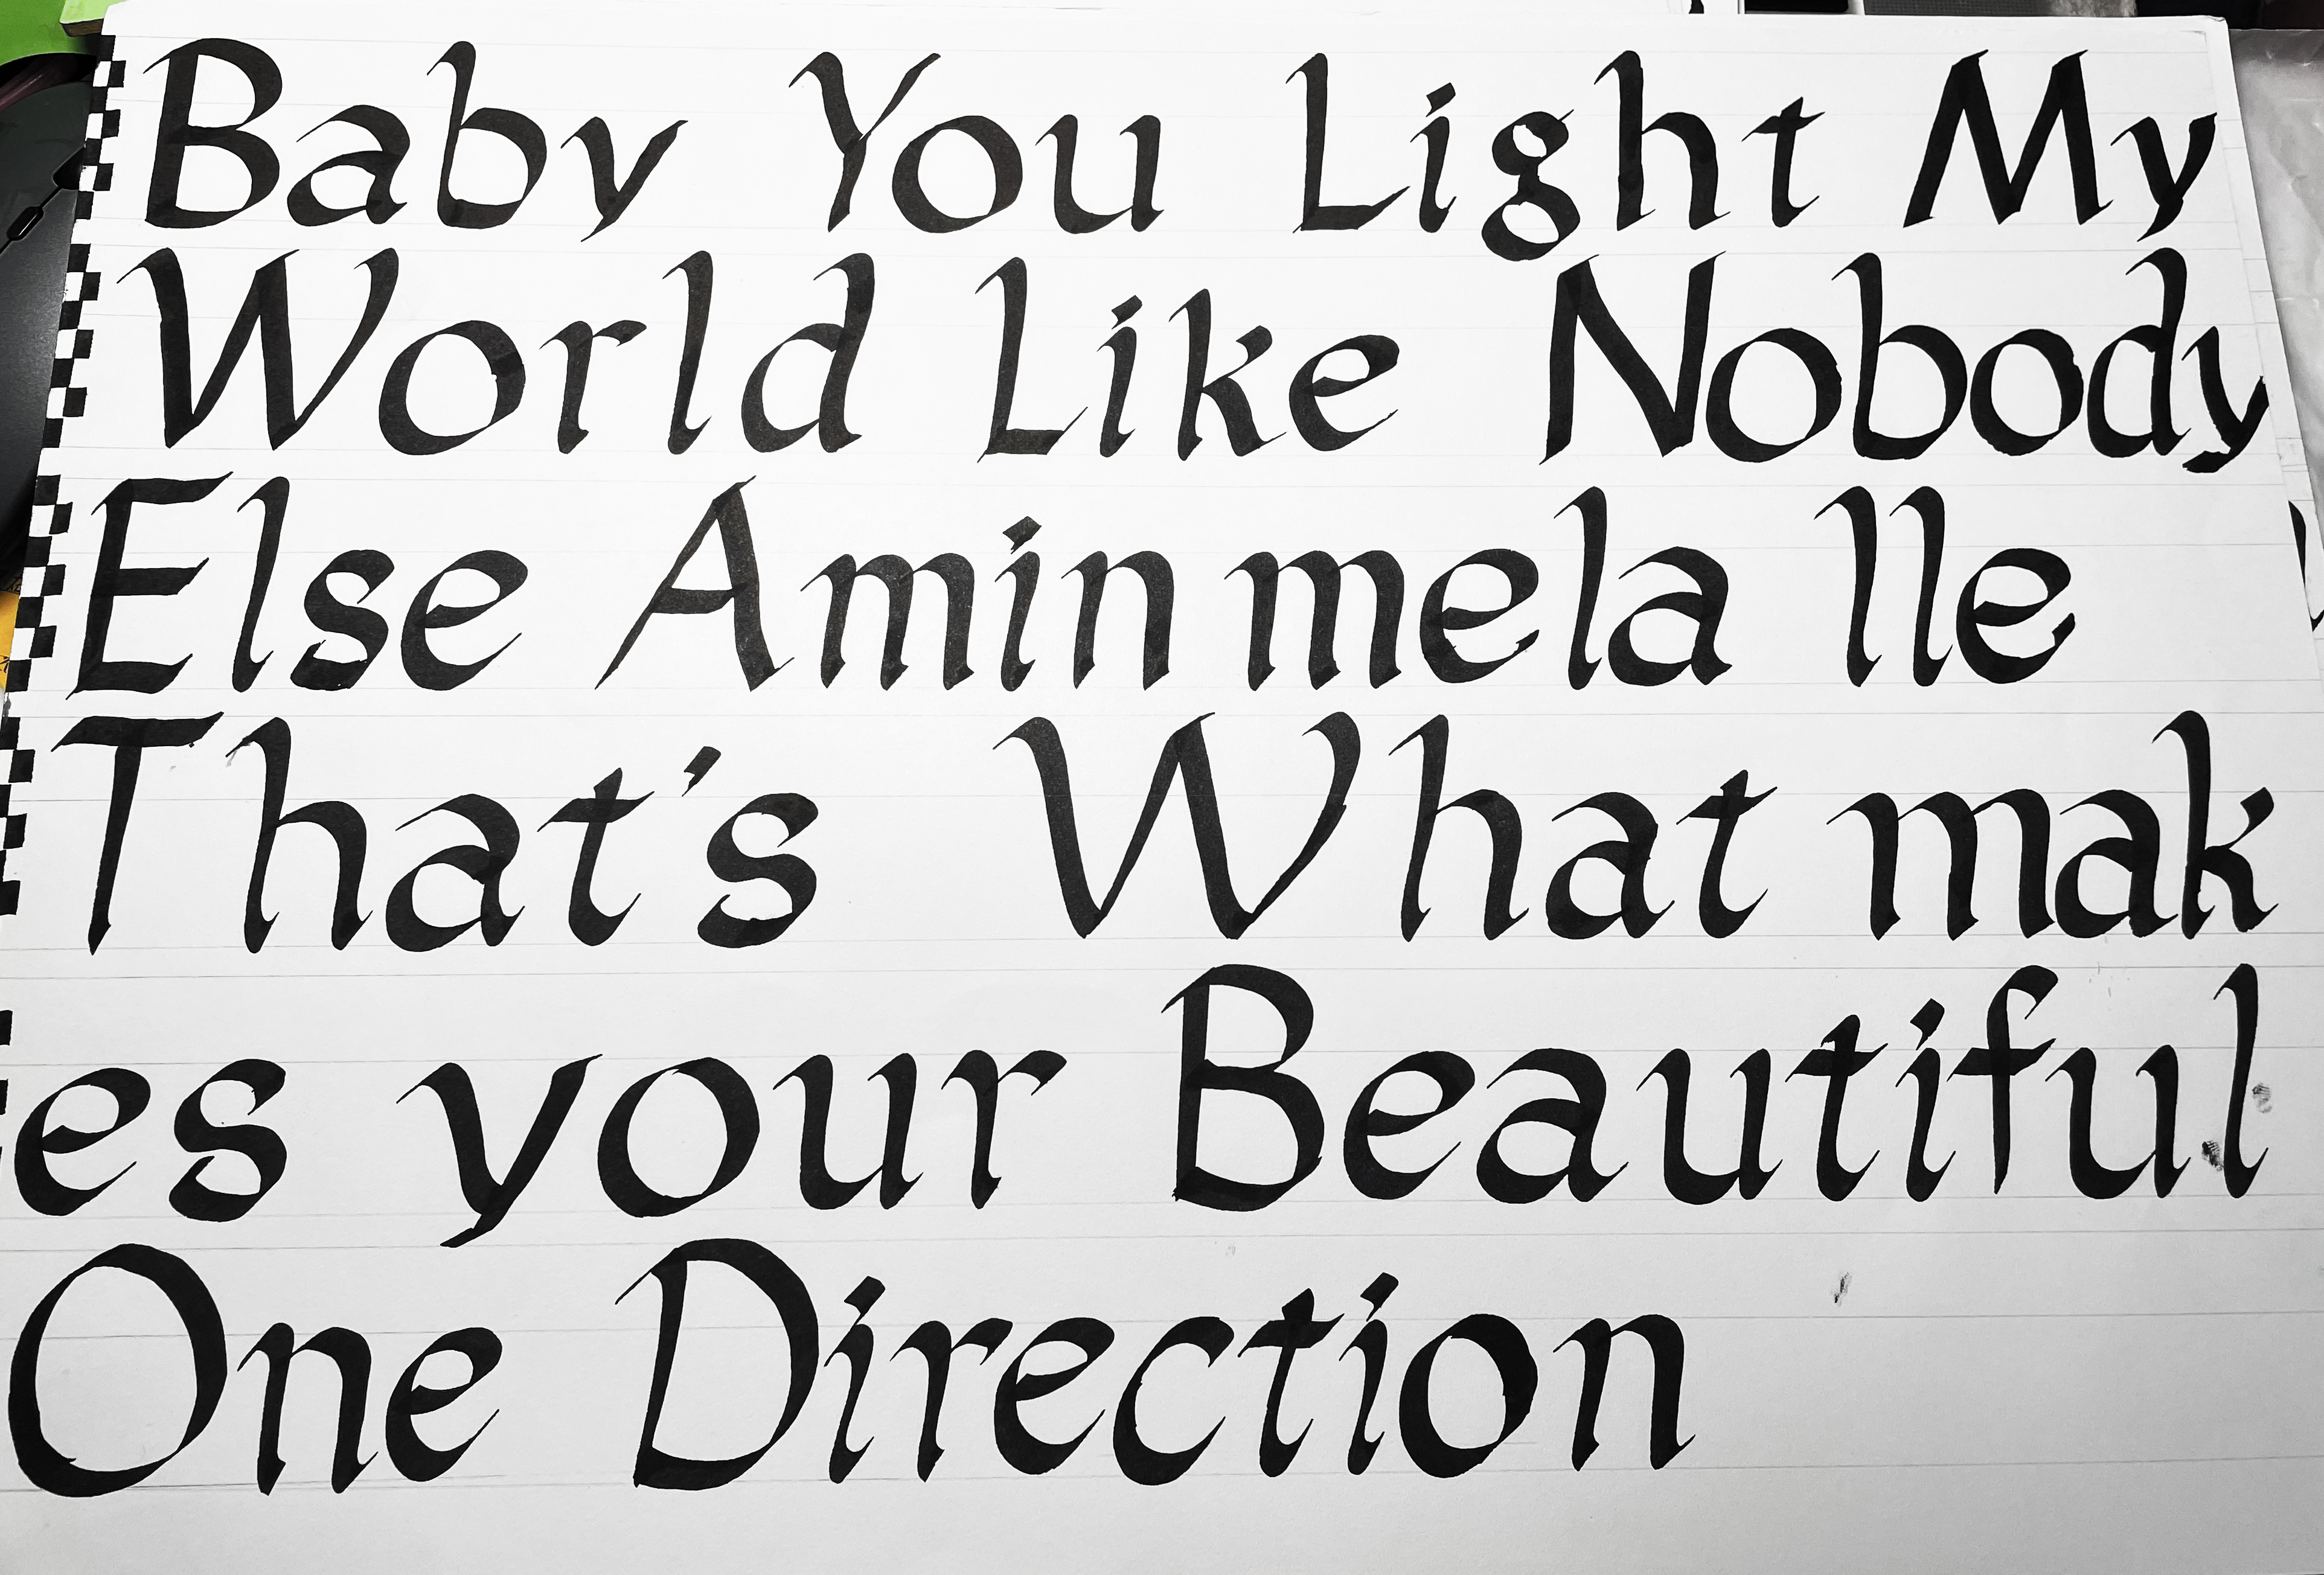 Baby You Light My
World Like Nobody
Else Amin mela lle
That's What mak
es your Beautiful
One Direction